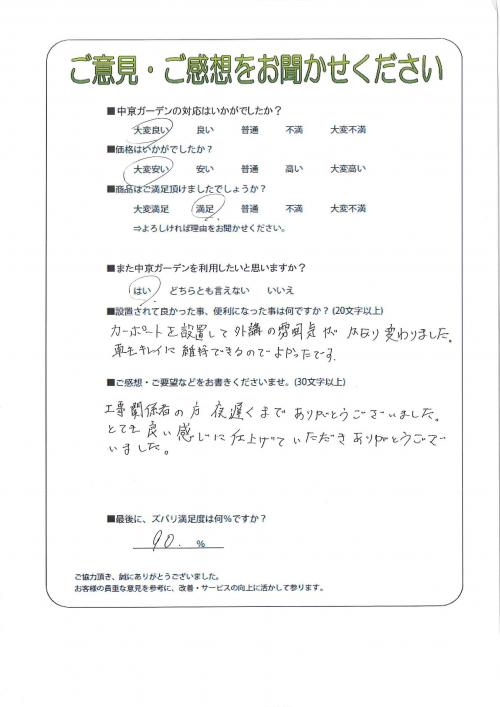 ご意見・ご感想をお聞かせください
■中京ガーデンの対応はいかがでしたか？
大変良い 良い 普通 不満 大変不満
■価格はいかがでしたか？
大変安い 安い 普通 高い 大変高い
■商品はご満足頂けましたでしょうか？
大変満足 満足 普通 不満 大変不満
⇒よろしければ理由をお聞かせください。
■また中京ガーデンを利用したいと思いますか？
はい どちらとも言えない いいえ
■設置されて良かった事、便利になった事は何ですか？（20文字以上）
カーポートを設置して外講の雰囲気が かなり変わりました。
車もキレイに維持できるのでよかったです。
■ご感想・ご要望などをお書きくださいませ。（30文字以上）
工事関係者の方 夜遅くまでありがとうございました。
とても良い感じに仕上げていただきありがとうござ
いました。
■最後に、ズバリ満足度は何％ですか？
90. ％
ご協力頂き、誠にありがとうございました。
お客様の貴重な意見を参考に、改善・サービスの向上に活かして参ります。